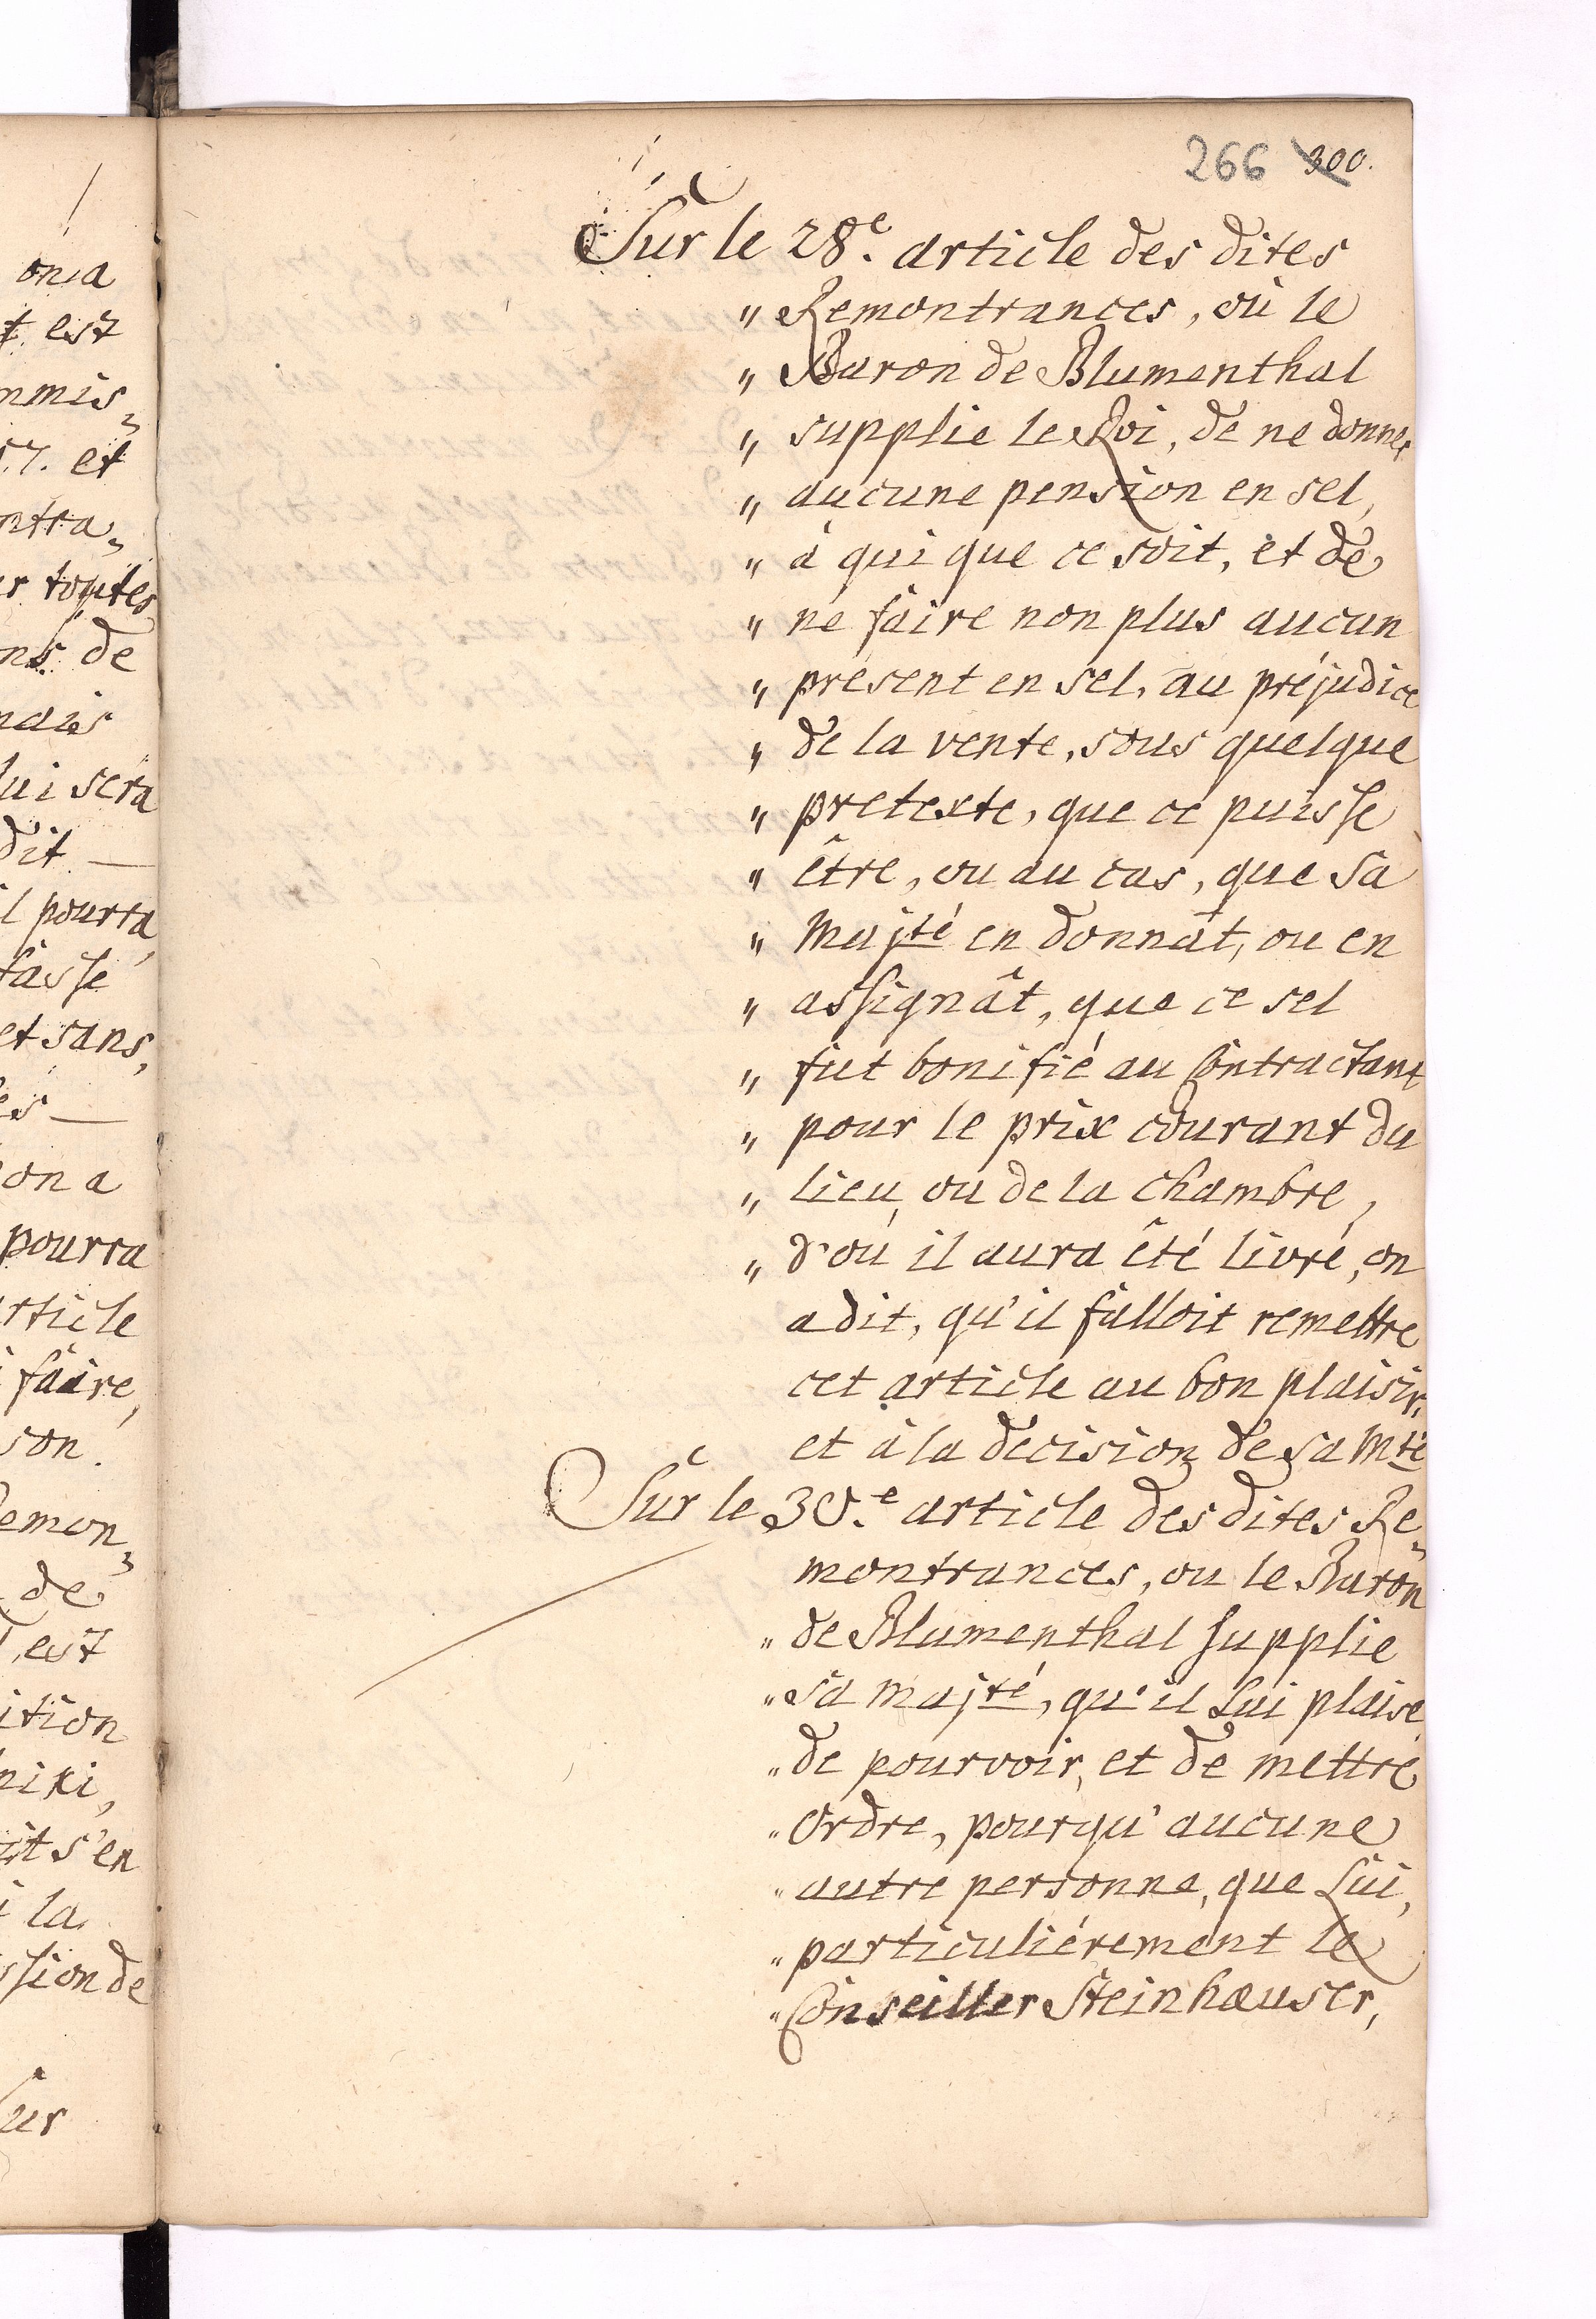 266 300.
Sur le 28.e article des dites
" Remontrances, où le
" Baron de Blumenthal
" supplie le Roi, de ne donner
" aucune pension en sel,
" à qui que ce soit, et de
" ne faire non plus aucun
" présent en sel, au préjudice
" de la vente, sous quelque
" pretexte, que ce puisse
" être, ou au cas, que Sa
" Majté en donnât, ou en
" assignât, que ce sel
" fut bonifié au Contractant
" pour le prix courant du
" lieu, ou de la Chambre,
" d'où il aura êté livré, on
a dit, qu'il falloit remettre
cet article au bon plaisir,
et à la decision de Sa Mté
Sur le 30.e article des dites Re„
montrances, ou le Baron
" de Blumenthal supplie
" Sa Majté, qu'il Lui plaise
" de pourvoir, et de mettre
" Ordre, pourqu'aucune
" autre personne, que Lui,
" particuliérement le
" Conseiller Steinhæuser,
on a
est
mmis„
57. et
ontra„
toutes
ns de
mais
lui sera
dit —
il pourra
fasse
et sans,
on a
pourra
rticle
faire,
son.
Remon„
de
est
ition
niki,
s'en
la
ssion de
Sur